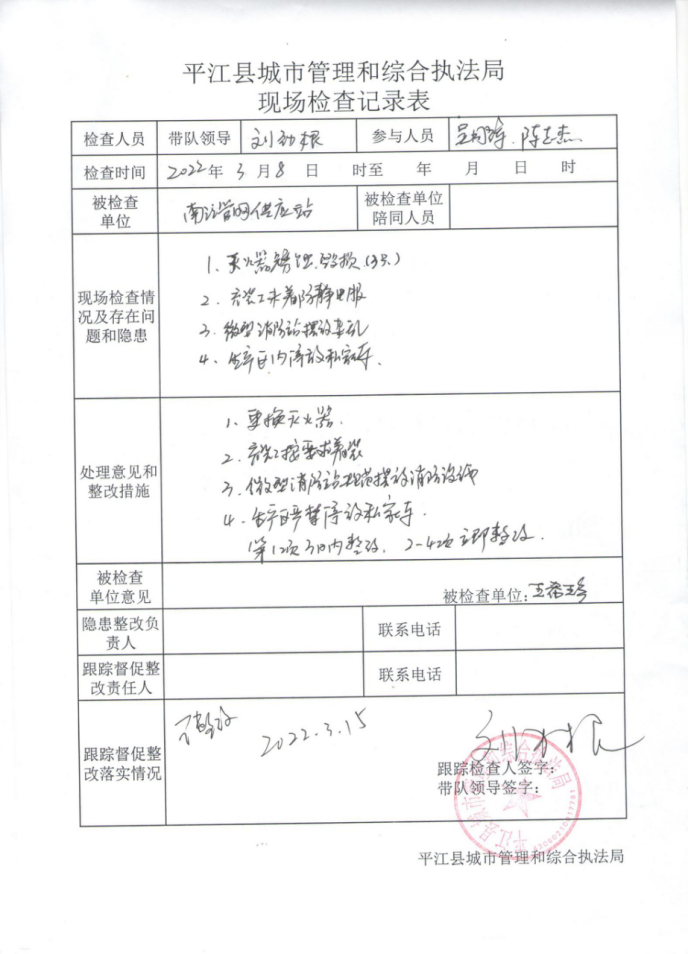 平江县城市管理和综合执法局
现场检查记录表
检查人员 带队领导 刘劲根 参与人员 陈志杰
检查时间 2022年 3月 8日 时至 年 月 日 时
被检查单位 南江管网供应站 被检查单位陪同人员
现场检查情况及存在问题和隐患
1、灭火器锈蚀、毁损(3只)
2、充装工未着防静电服
3、微型消防站摆放杂乱
4、生产区内停放私家车.
处理意见和整改措施
1、更换灭火器.
2、充装工按要求着装
3、微型消防站规范摆放消防设施
4、生产区严禁停放私家车.
第1项3日内整改, 2-4项立即整改.
被检查单位意见
被检查单位:
隐患整改负责人 联系电话
跟踪督促整改责任人 联系电话
跟踪督促整改落实情况
已整改 2022.3.15
刘劲根
跟踪检查人签字:
带队领导签字:
平江县城市管理和综合执法局
平江县城市管理和综合执法局